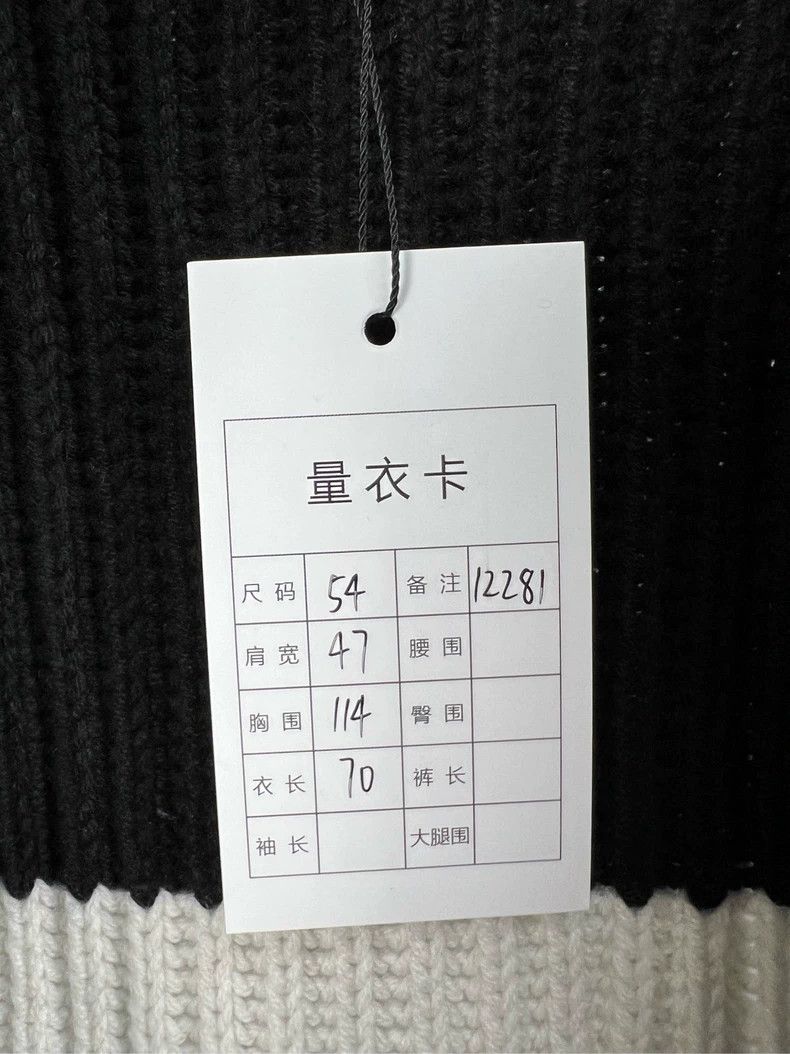 量衣卡
尺码 54 备注 12281
肩宽 47 腰围
胸围 114 臀围
衣长 70 裤长
袖长 大腿围